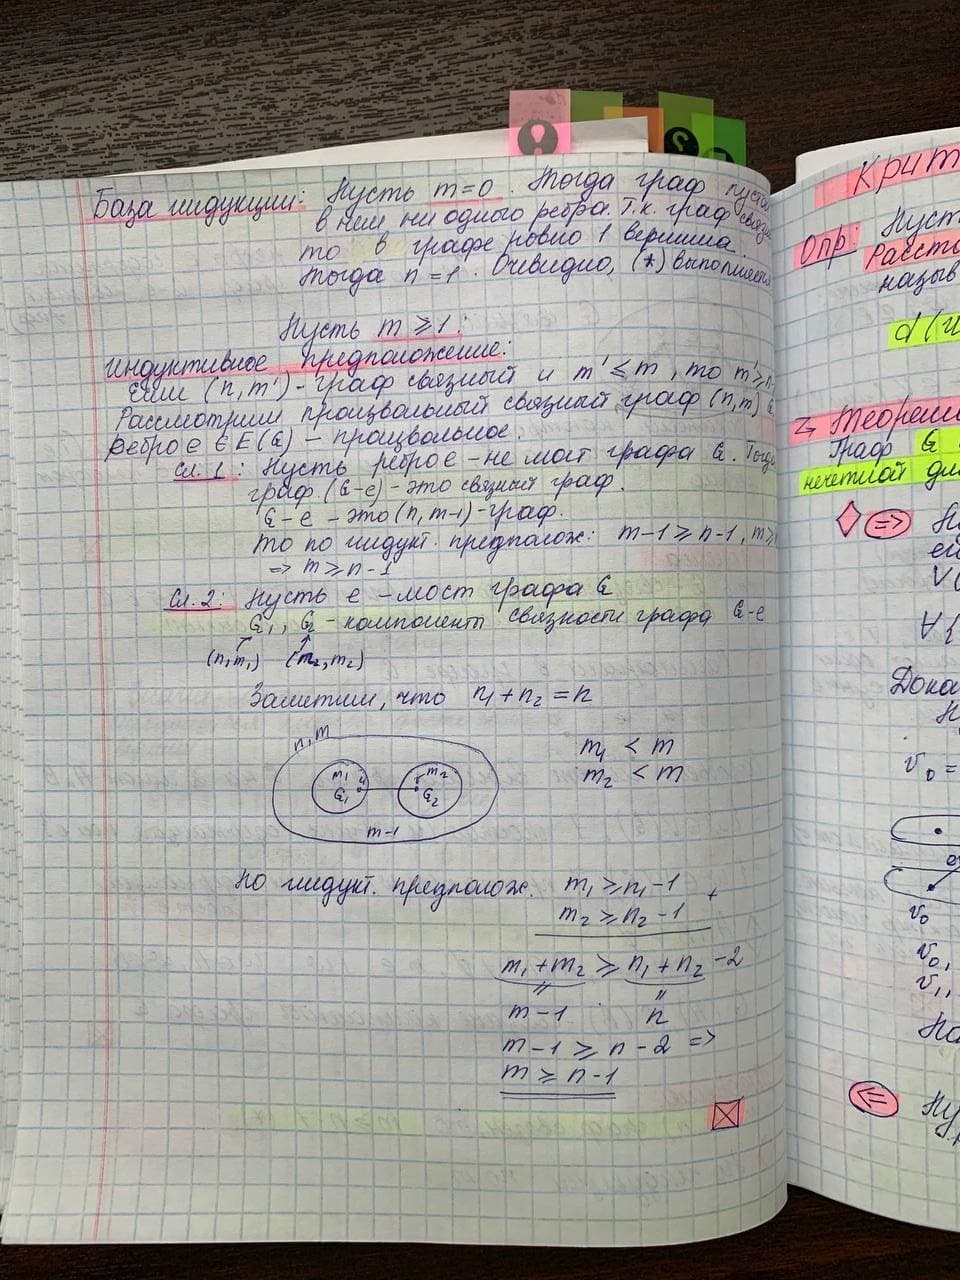 База индукции: Пусть m=0. Тогда граф пустой
в нем ни одного ребра. Т.к. граф связн
то в графе ровно 1 вершина.
Тогда n=1. Очевидно, (*) выполняется
Пусть m ⩾ 1:
индуктивное предположение:
Если (n,m')-граф связный и m' ⩽ m, то m' ⩾ n-
Рассмотрим произвольный связный граф (n,m) G
Ребро e ∈ E(G) – произвольное.
Сл. 1: Пусть ребро e – не мост графа G. Тогда
граф (G-e) – это связный граф.
G-e – это (n, m-1)-граф.
То по индукт. предполож: m-1 ⩾ n-1, m ⩾
=> m ⩾ n-1
Сл. 2: Пусть e – мост графа G
G₁, G₂ – компоненты связности графа G-e
(n,m₁) (m₂,m₂)
Заметим, что n₁+n₂ = n
n,m
m₁ G₁
m₂ G₂
m-1
m₁ < m
m₂ < m
По индукт. предполож. m₁ ⩾ n₁-1
+
m₂ ⩾ n₂-1
m₁+m₂ ⩾ n₁+n₂-2
m-1 n
m-1 ⩾ n-2 =>
m ⩾ n-1
Крит
Опр: Пуст
Рассто
назыв
d(u
Теорем
Граф G
нечетной дл
=>
V(
∀ }
Дока
v₀ =
v₀
v₀,
v₁,
<=